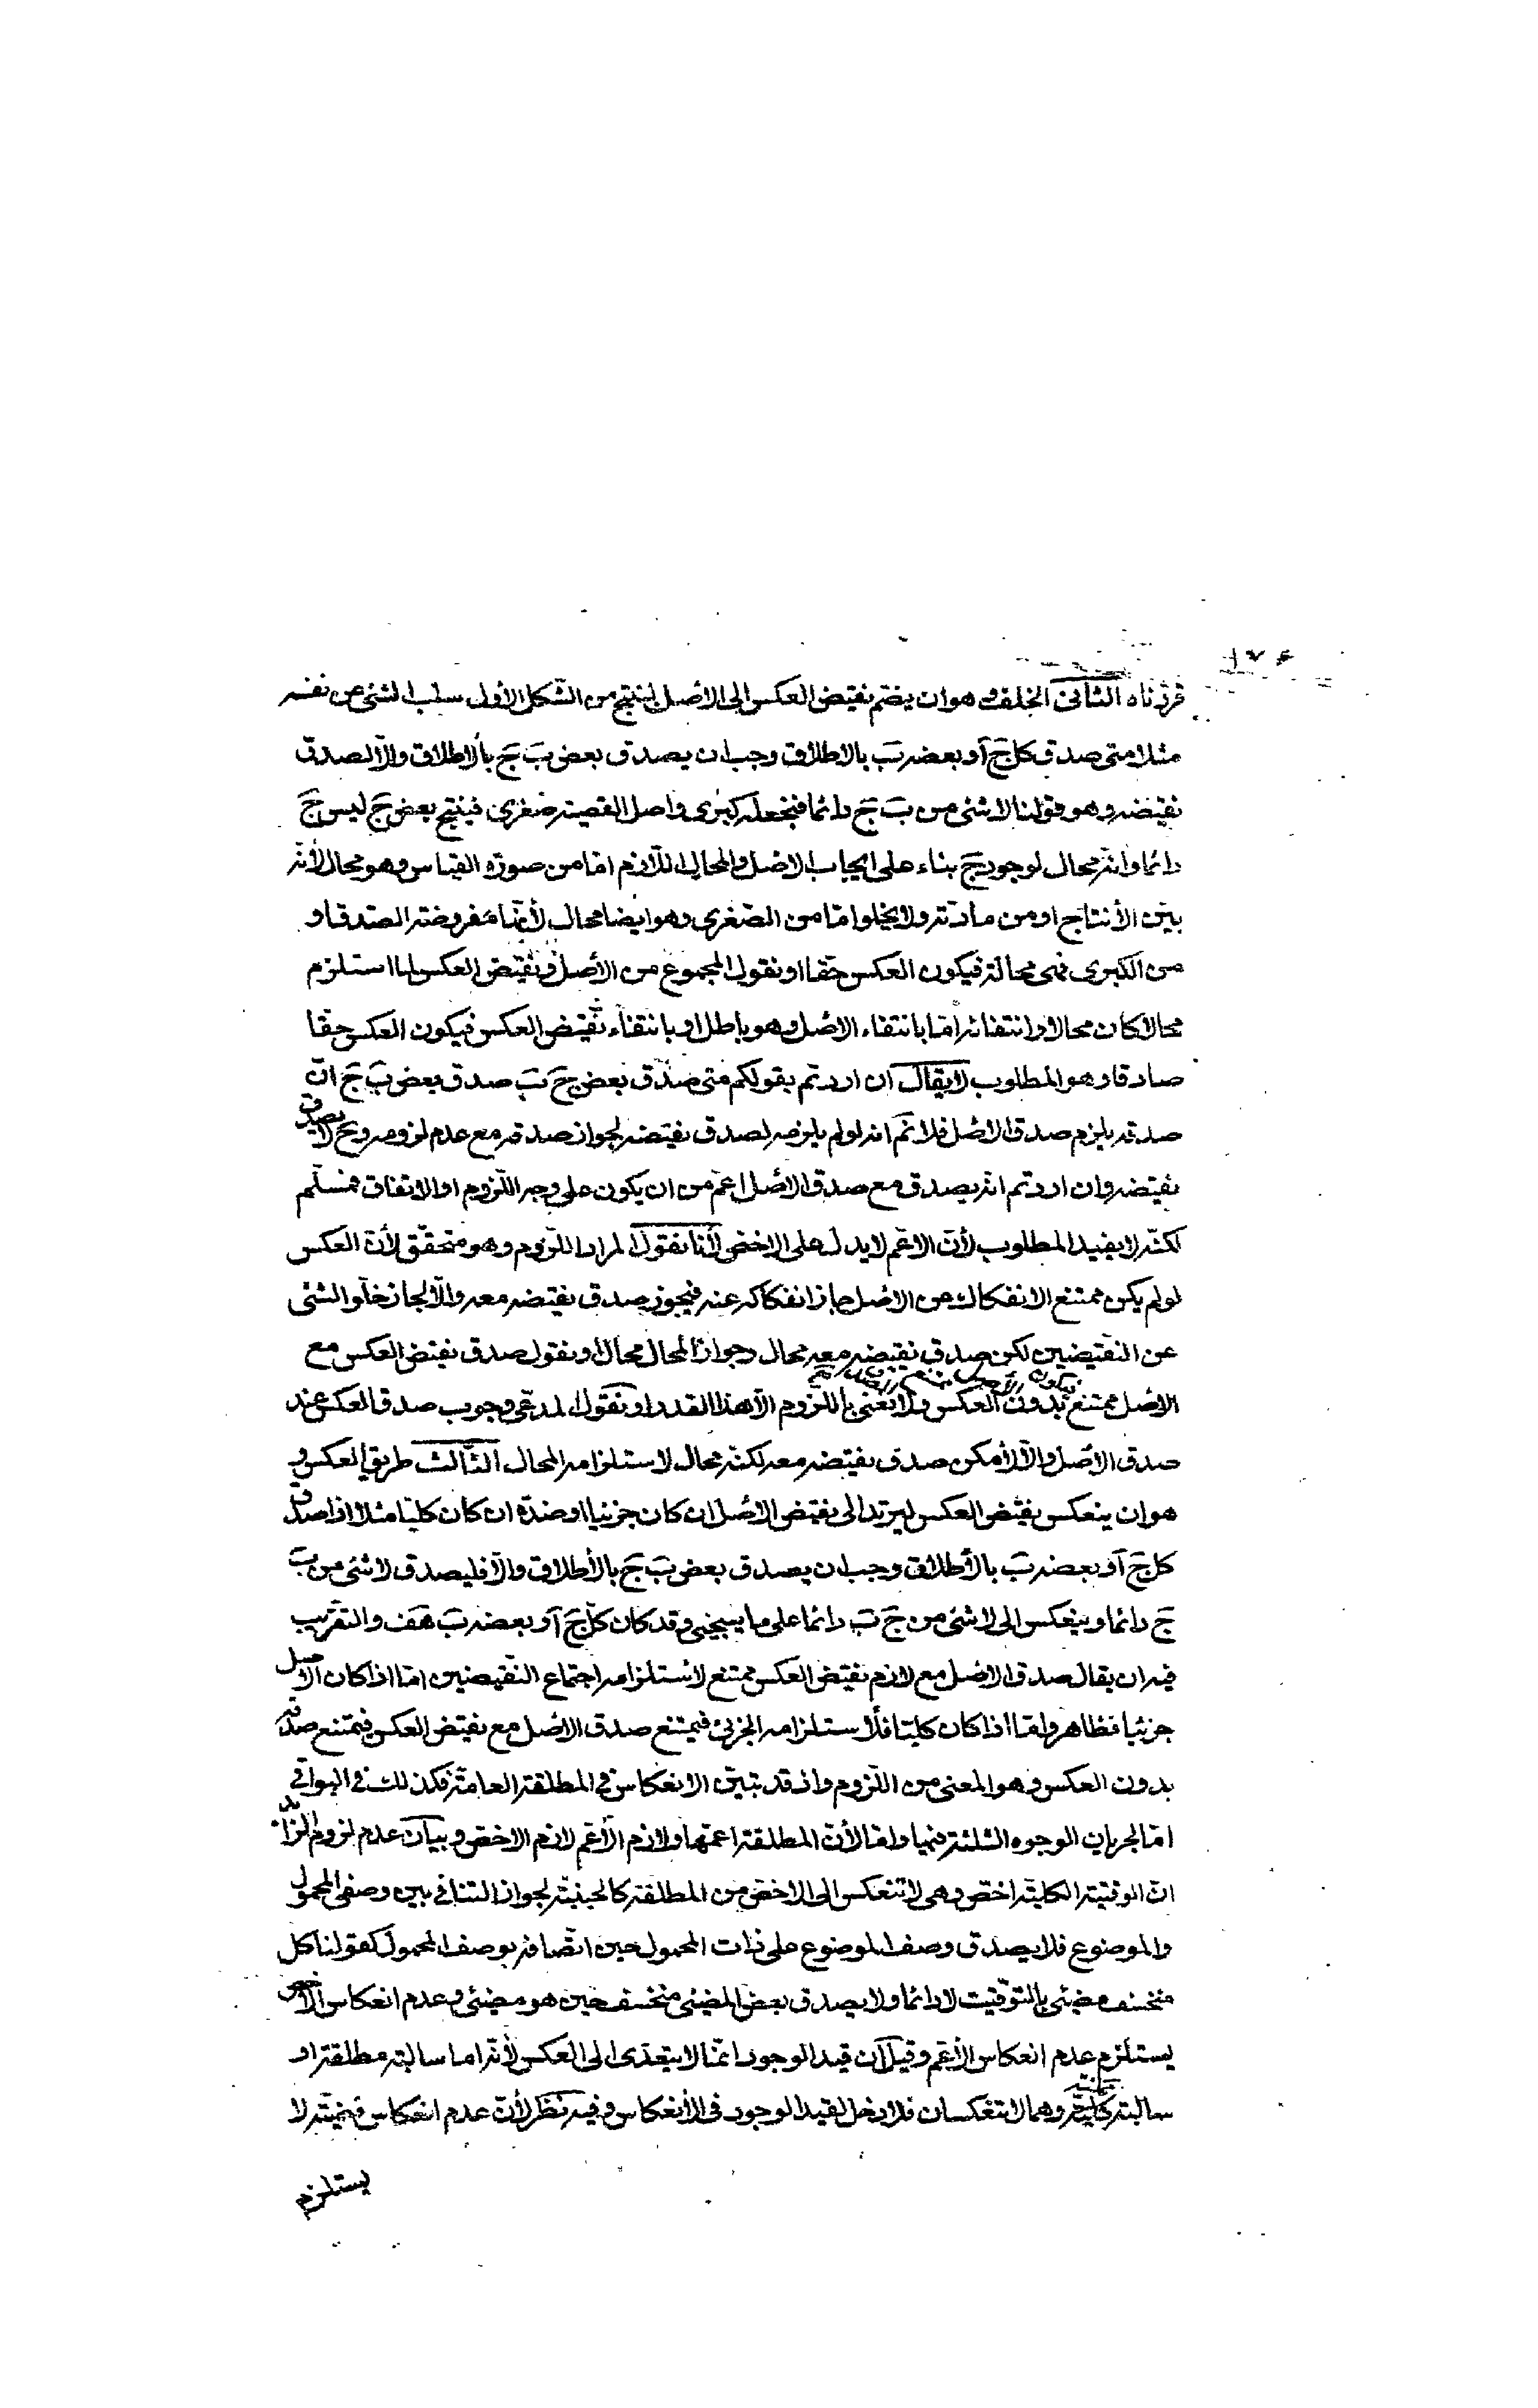 ١٧۴
قررناه الثانى الخلف و هو ان يضم نقيض العكس الى الاصل لينتج من الشكل الأول سلب الشئ عن نفسه
مثلا متى صدق كل جَ آو بعضه بَ بالاطلاق وجب ان يصدق بعض بَ جَ بالاطلاق والّا لصدق
نقيضه و هو قولنا لا شئ من بَ جَ دائما فنجعله كبرى واصل القضية صغرى فينتج بعض جَ ليس جَ
دائما وانه محال لوجود جَ بناء على ايجاب الاصل والمحال اللازم امّا من صورة القياس و هو محال لأنّه
بيّن الأنتاج او من مادته ولا يخلوا امّا من الصغرى و هو ايضا محال لأنّها مفروضة الصدق او
من الكبرى فهى محالة فيكون العكس حقّا او نقول المجموع من الأصل و نقيض العكس لما استلزم
محالا كان محالا وانتفائه امّا بانتفاء الاصل و هو باطل او بانتفاء نقيض العكس فيكون العكس حقّا
صادقا و هو المطلوب لا يقال ان اردتم بقولكم متى صدق بعض جَ بَ صدق بعض بَ جَ انّ
صدقه يلزم صدق الاصل فلا نم انه لو لم يلزمه لصدق نقيضه لجواز صدقه مع عدم لزومه و ح لا يصدق
نقيضه وان اردتم انّه يصدق مع صدق الاصل اعمّ من ان يكون على وجه اللّزوم او الاتفاق فمسلّم
لكنّه لا يفيد المطلوب لأنّ الاعمّ لا يدل على الاخص لأنا نقول المراد اللزوم و هو متحقّق لأنّ العكس
لو لم يكن ممتنع الانفكاك عن الاصل جاز انفكاكه عنه فيجوز صدق نقيضه معه والّا لجاز خلّو الشئ
عن النقيضين لكن صدق نقيضه معه محال وجواز المحال محال او نقول صدق نقيض العكس مع
الاصل ممتنع فيكون الأصل بدون العكس ولا نعنى باللّزوم الّا هذا القدر او نقول المدعى وجوب صدق العكس عند
صدق الاصل والّا لأمكن صدق نقيضه معه لكنّه محال لاستلزامه المحال الثالث طريق العكس و
هو ان ينعكس نقيض العكس ليرتد الى نقيض الاصل ان كان جزئيا او ضدّه ان كان كليّا مثلا اذا صدق
كل جَ آو بعضه بَ بالأطلاق وجب ان يصدق بعض بَ جَ بالأطلاق والّا فليصدق لا شئ من بَ
جَ دائما وينعكس الى لا شئ من جَ بَ دائما على ما سيجئ و قد كان كلّ جَ آو بعضه بَ هَف والتقريب
فيه ان يقال صدق الاصل مع لازم نقيض العكس ممتنع لاستلزامه اجتماع النقيضين امّا اذا كان الاصل
جزئيا فظاهر وامّا اذا كان كليّا فلاستلزامه الجزئى فيمتنع صدق الاصل مع نقيض العكس فيمتنع صدقه
بدون العكس و هو المعنى من اللّزوم واذ قد تبيّن الانعكاس فى المطلقة العامّة فكذلك فى البواقى
امّا لجريان الوجوه الثلثة فيها وامّا لأنّ المطلقة اعمّها ولازم الأعّم لازم الاخصّ و بيان عدم لزوم الزائد
انّ الوقتيّة الكليّة اخصّ و هى لا تنعكس الى الاخصّ من المطلقة كالحينيّة لجواز التنافى بين وصفى المحمول
والموضوع فلا يصدق وصف الموضوع على ذات المحمول حين اتّصافه بوصف المحمول كقولنا كل
منخسف مضيئى بالتوقيت لا دائما ولا يصدق بعض المضيئى منخسف حين هو مضيئى و عدم انعكاس الأخص
يستلزم عدم انعكاس الأعّم و قيل ان قيد الوجود انّما لا يتعدّى الى العكس لأنّه اما سالبة مطلقة او
سالبة ممكنة و هما لا تنعكسان فلا دخل لقيد الوجود فى الأنعكاس و فيه نظر لأنّ عدم انعكاس قضيّة لا
يستلزم